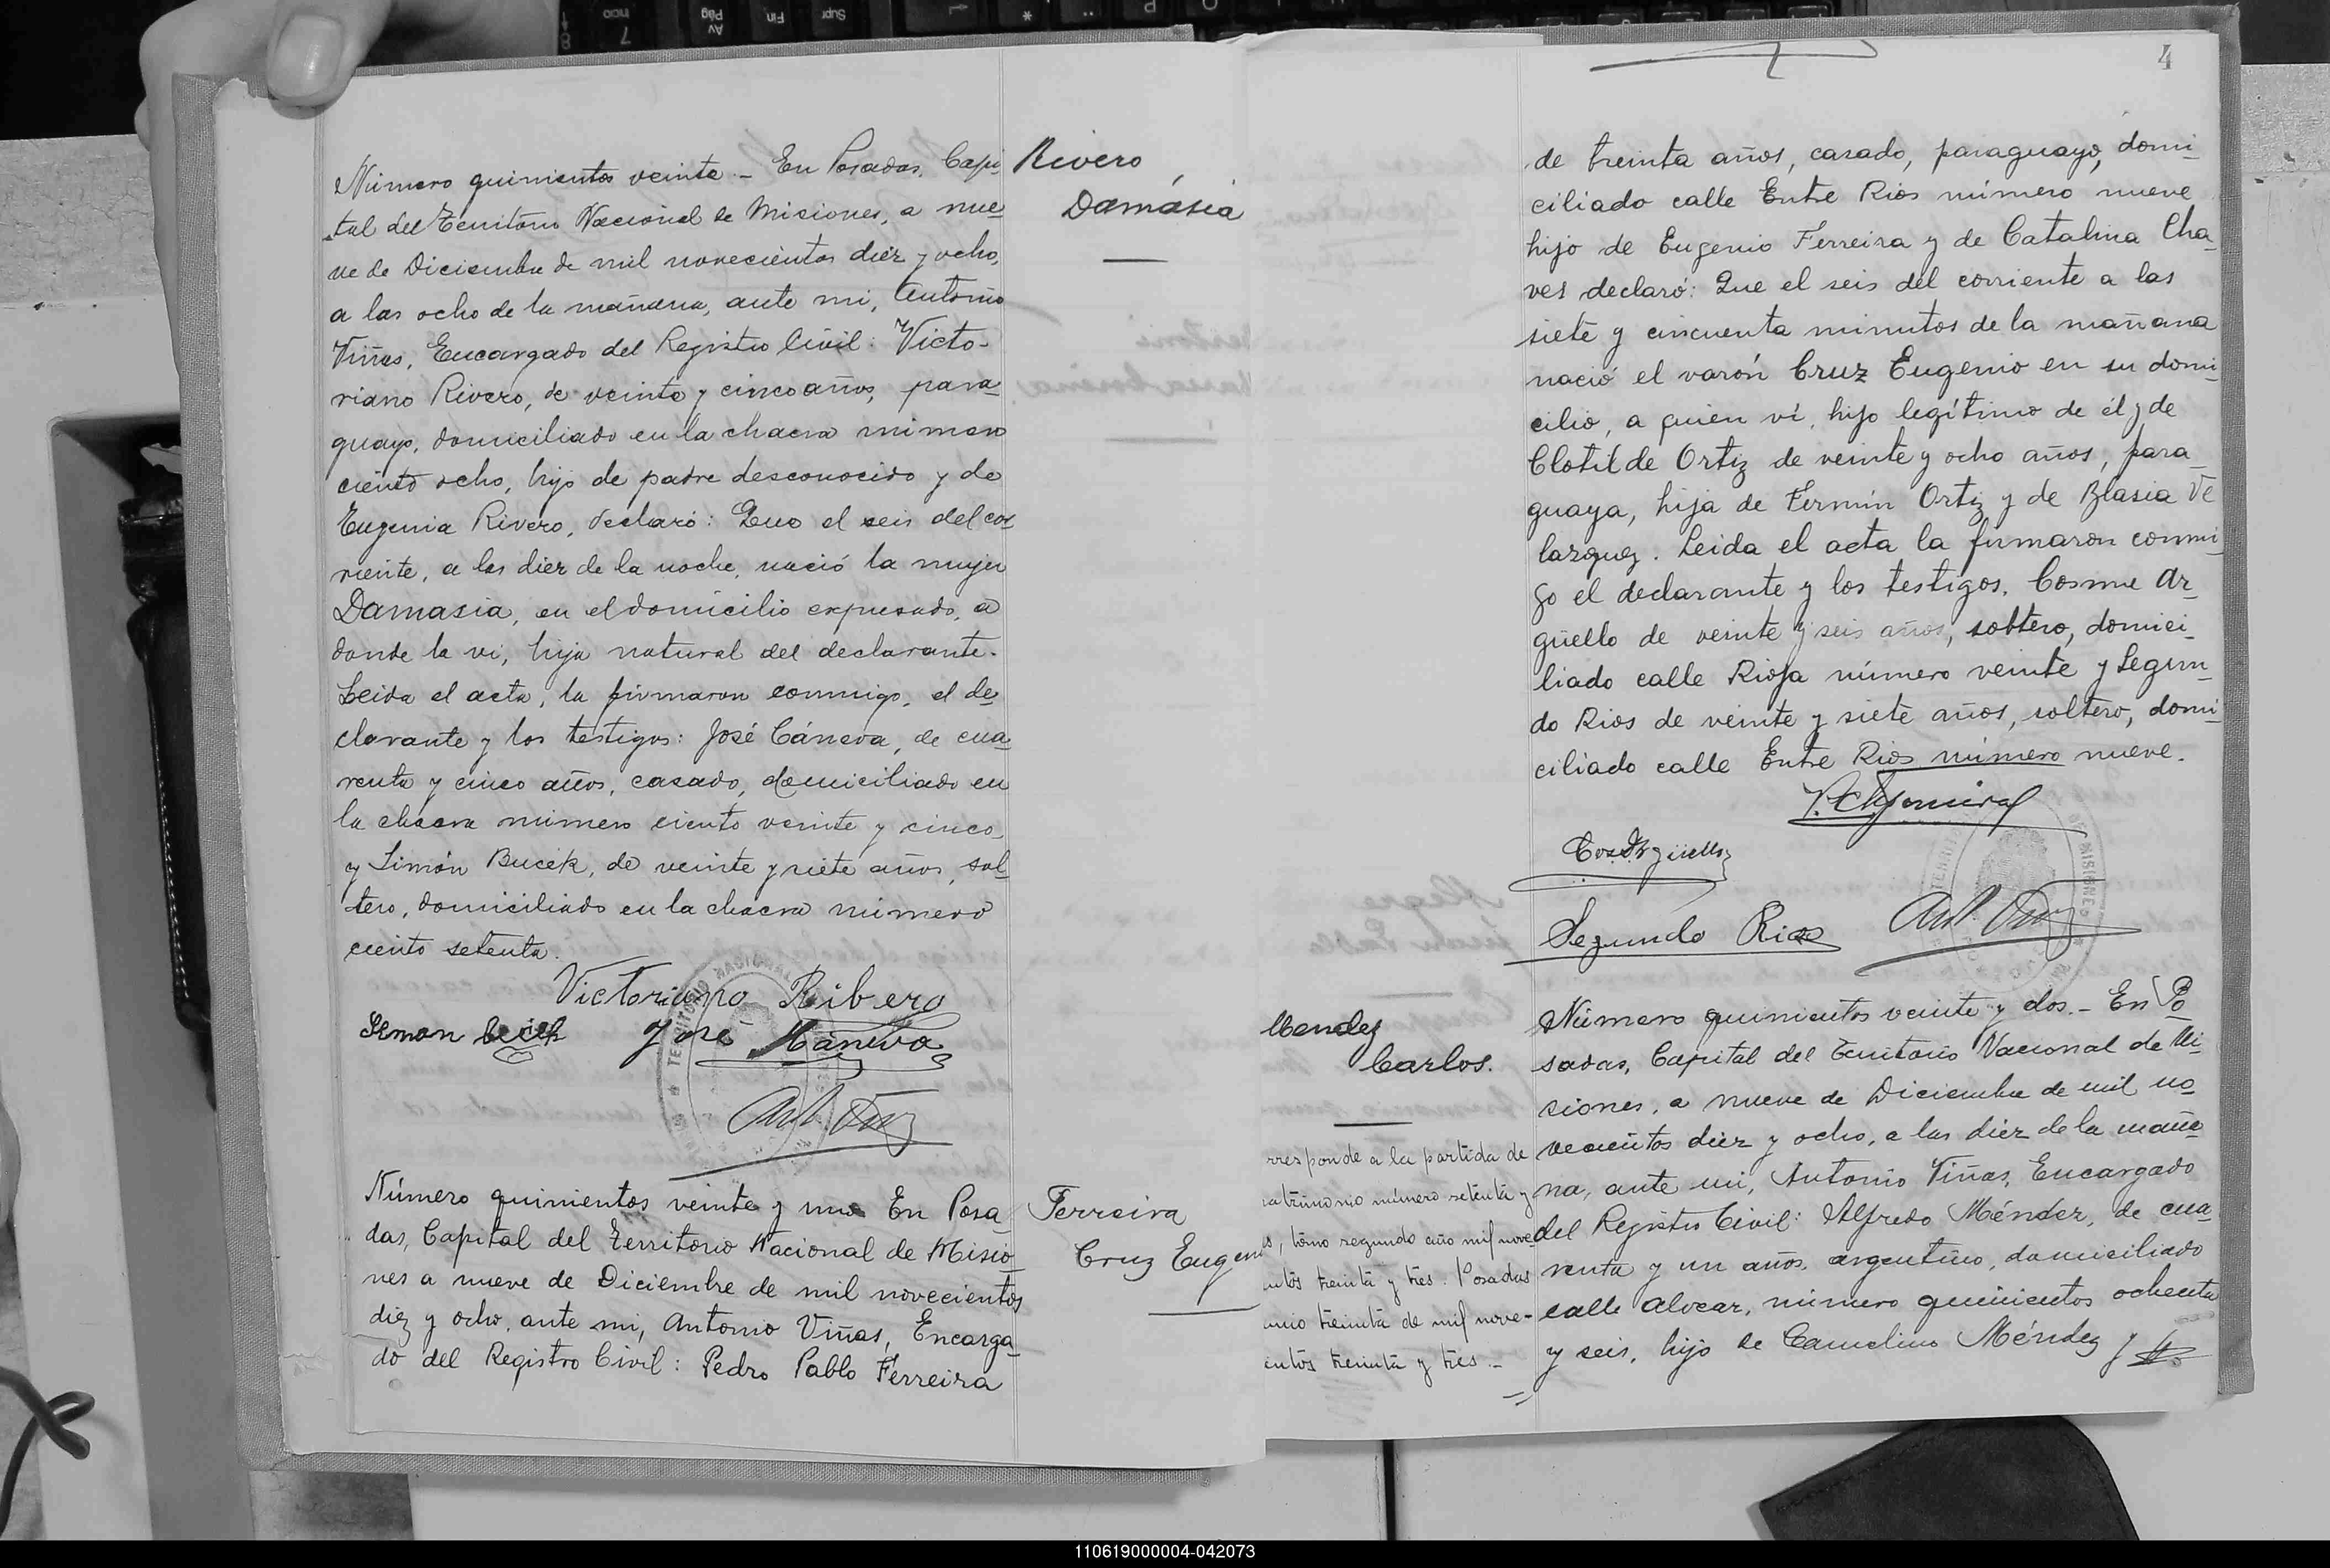 Número quinientos veinte.- En Posadas, Capi-
tal del Territorio Nacional de Misiones, a nue-
ve de Diciembre de mil novecientos diez y ocho,
a las ocho de la mañana, ante mi, Antonio
Viñas, Encargado del Registro Civil: Victo-
riano Rivero, de veinte y cinco años, para-
guayo, domiciliado en la chacra número
ciento ocho, hijo de padre desconocido y de
Eugenia Rivero, declaró: Que el seis del co-
rriente, a las diez de la noche, nació la mujer
Damasia, en el domicilio expresado, a
donde la vi, hija natural del declarante.
Leida el acta, la firmaron conmigo, el de-
clarante y los testigos: José Cáneva, de cua-
renta y cinco años, casado, domiciliado en
la chacra número ciento veinte y cinco,
y Simón Bucek, de veinte y siete años, sol-
tero, domiciliado en la chacra número
ciento setenta.
Victoriano Ribero
Simon José Káneva
Ant. Viñas
Rivero,
Damasia
Número quinientos veinte y uno En Posa-
das, Capital del Territorio Nacional de Misio-
nes a nueve de Diciembre de mil novecientos
diez y ocho, ante mi, Antonio Viñas, Encarga-
do del Registro Civil: Pedro Pablo Ferreira
Ferreira
Cruz Eugenio
4
de treinta años, casado, paraguayo, domi-
ciliado calle Entre Rios número nueve
hijo de Eugenio Ferreira y de Catalina Cha-
ves declaró: Que el seis del corriente a las
siete y cincuenta minutos de la mañana
nació el varón Cruz Eugenio en su domi-
cilio, a quien ví, hijo legítimo de él y de
Clotilde Ortiz de veinte y ocho años, para-
guaya, hija de Fermín Ortiz y de Blasia Ve
lazquez. Leida el acta la firmaron conmi-
go el declarante y los testigos, Cosme Ar-
güello de veinte y seis años, soltero, domici-
liado calle Rioja número veinte y Segun-
do Rios de veinte y siete años, soltero, domi-
ciliado calle Entre Rios número nueve.
Cos. Argüello
Segundo Rios Ant. Viñas
Mendez
Carlos.
rresponde a la partida de
matrimonio número setenta y
tomo segundo año mil nove-
entos treinta y tres. Posadas
unio treinta de mil nove-
entos treinta y tres.-
Número quinientos veinte y dos.- En Po
sadas, Capital del Territorio Nacional de Mi-
siones, a nueve de Diciembre de mil no-
vecientos diez y ocho, a las diez de la maña-
na, ante mi, Antonio Viñas, Encargado
del Registro Civil: Alfredo Méndez, de cua-
renta y un años, argentino, domiciliado
calle Alvear, número quinientos ochenta
y seis, hijo de Camelino Méndez y
110619000004-042073